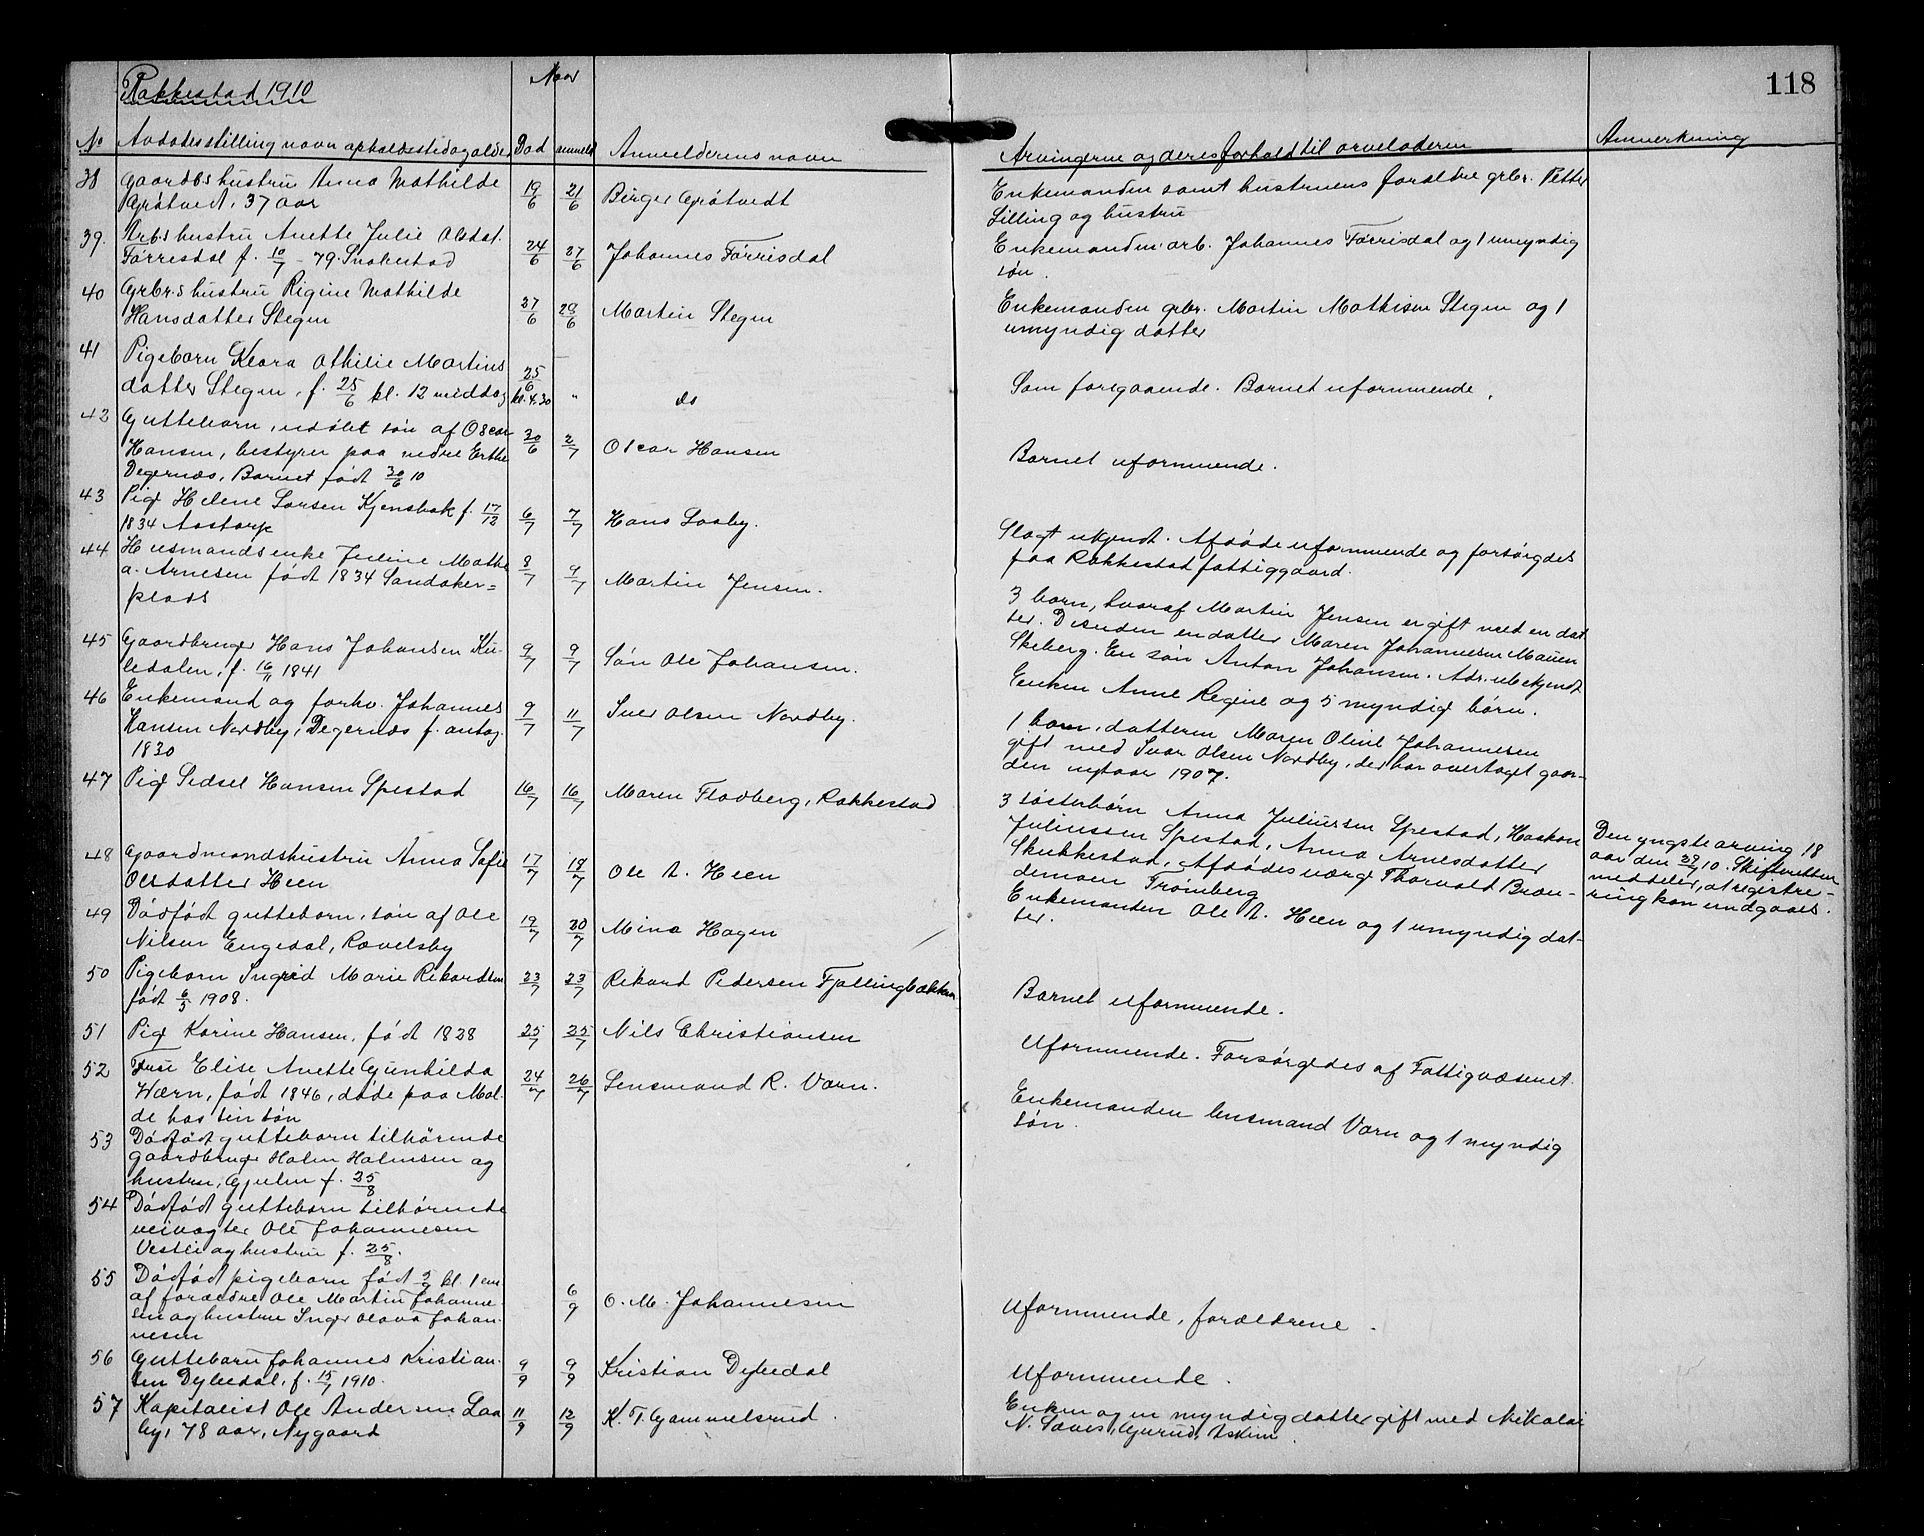 118
Rakkestad 1910
Naar
No Avdødes stilling navn opholdssted og alder Død anmeldt Anmelderens navn Arvingerne og deres forhold til arveladeren Anmerkning
38 Gaardbs hustru Anna Mathilde 19/6 21/6 Birger Grøtvedt Enkemanden samt hustruens forældre grbr. Petter
Grøtvedt, 37 aar Lilling og hustru
39. Arbs hustru Anette Julie Olsdat. 24/6 27/6 JohannesFørrisdal Enkemanden arb. Johannes Førrisdal og 1 umyndig
Førresdal f. 10/7 - 79. søn.
40 Grbr.s hustru Rigine Mathilde 27/6 29/6 Martin Stegen Enkemanden grbr. Martin Mathisen Stegen og 1
Hansdatter Stegen umyndig datter
41 Pigebarn Klara Othilie Martins 25/6 " do Som foregaaende. Barnet uformuende.
datter Stegen, f. 25/6 kl. 12 middag kl. 4.30
42 Guttebarn, udøbt søn af Oscar 30/6 2/7 Oscar Hansen Barnet uformuende.
Hansen, bestyrer paa nedre Erthe
Degernæs, Barnet født 30/6 10
43 Pige Helene Larsen Kjensbak f. 17/12 6/7 7/7 Hans Laaby. Slægt ukjendt. Afdøde uformuende og forsørgdes
1834 Aastorp paa Rakkestad fattiggaard.
44 Husmandsenke Juline Mathe 8/7 9/7 Martin Jensen. 3 barn, hvoraf Martin Jensen er gift med en dat
a. Arnesen født 1834 Sandaker= ter. Desuden en datter Maren Johannesen Mauen
plads Skeberg. En søn Anton Johansen. Adr. ubekjendt
45 Gaardbruger Hans Johansen Ku- 9/7 9/7 Søn Ole Johansen. Enken Anne Regine og 5 myndige børn.
ledalen, f. 16/11 1841
46 Enkemand og forhv. Johannes 9/7 11/7 Iver Olsen Nordby. 1 barn, datteren Maren Oline Johannesen
Hansen Nordby, Degernæs f. antag. gift med Ivar Olsen Nordby, der har overtaget gaar-
1830 den nytaar 1907.
47 Pige Sidsel Hansen Spestad 16/7 16/7 Maren Fladberg, Rakkestad 3 søsterbørn Anna Juliusen Spestad, Haakon
Juliussen Spestad, Anna Arnesdatter
Skukkestad, Afdødes værge Thorvald Braar-
demoen Trømberg
Den yngste arving 18
aar den 29/7 10. Skifteretten
meddeler, at registre-
ring kan undgaaes.
48 Gaardmandshustru Anna Sofie 17/7 18/7 Ole A. Heen Enkemanden Ole A. Heen og 1 umyndig dat-
Olsdatter Heen ter.
49 Dødfødt guttebarn, søn af Ole 19/7 20/7 Mina Hagen
Nilsen Engedal, Ravelsby
50 Pigebarn Ingrid Marie Rikardsen 23/7 23/7 Rikard Pedersen Fjellingbakken Barnet uformuende.
født 6/5 1908.
51 Pige Karine Hansen, født 1828 25/7 25/7 Nils Christiansen Uformuende. Forsørgedes af Fattigvæsenet.
52 Fru Elise Anette Gunhilda 24/7 26/7 Lensmand R. Værn. Enkemanden lensmand Værn og 1 myndig
Wærn, født 1846, døde paa Mol- søn.
de hos sin søn
53 Dødfødt guttebarn tilhørende
gaardbruger Halm Halmsen og
hustru, Gjulem f. 25/8
54 Dødfødt guttebarn tilhørende
veivogter Ole Johannesen
Vestli og hustru f. 25/8.
55 Dødfødt pigebarn født 2/9 kl. 1 em. 6/9 O. M. Johannesen Uformuende, forældrene.
af forældre Ole Martin Johanne-
sen og hustru Inger Olava Johan-
nesen
56 Guttebarn Johannes Kristian- 9/9 9/9 Kristian Dybedal Uformuende.
sen Dybedal, f. 15/7 1910.
57 Kapitalist Ole Andersen Laa 11/9 12/9 K. T. Gammelsrud. Enken og en myndig datter gift med Nikolai
by, 78 aar, Nygaard N. Askim.